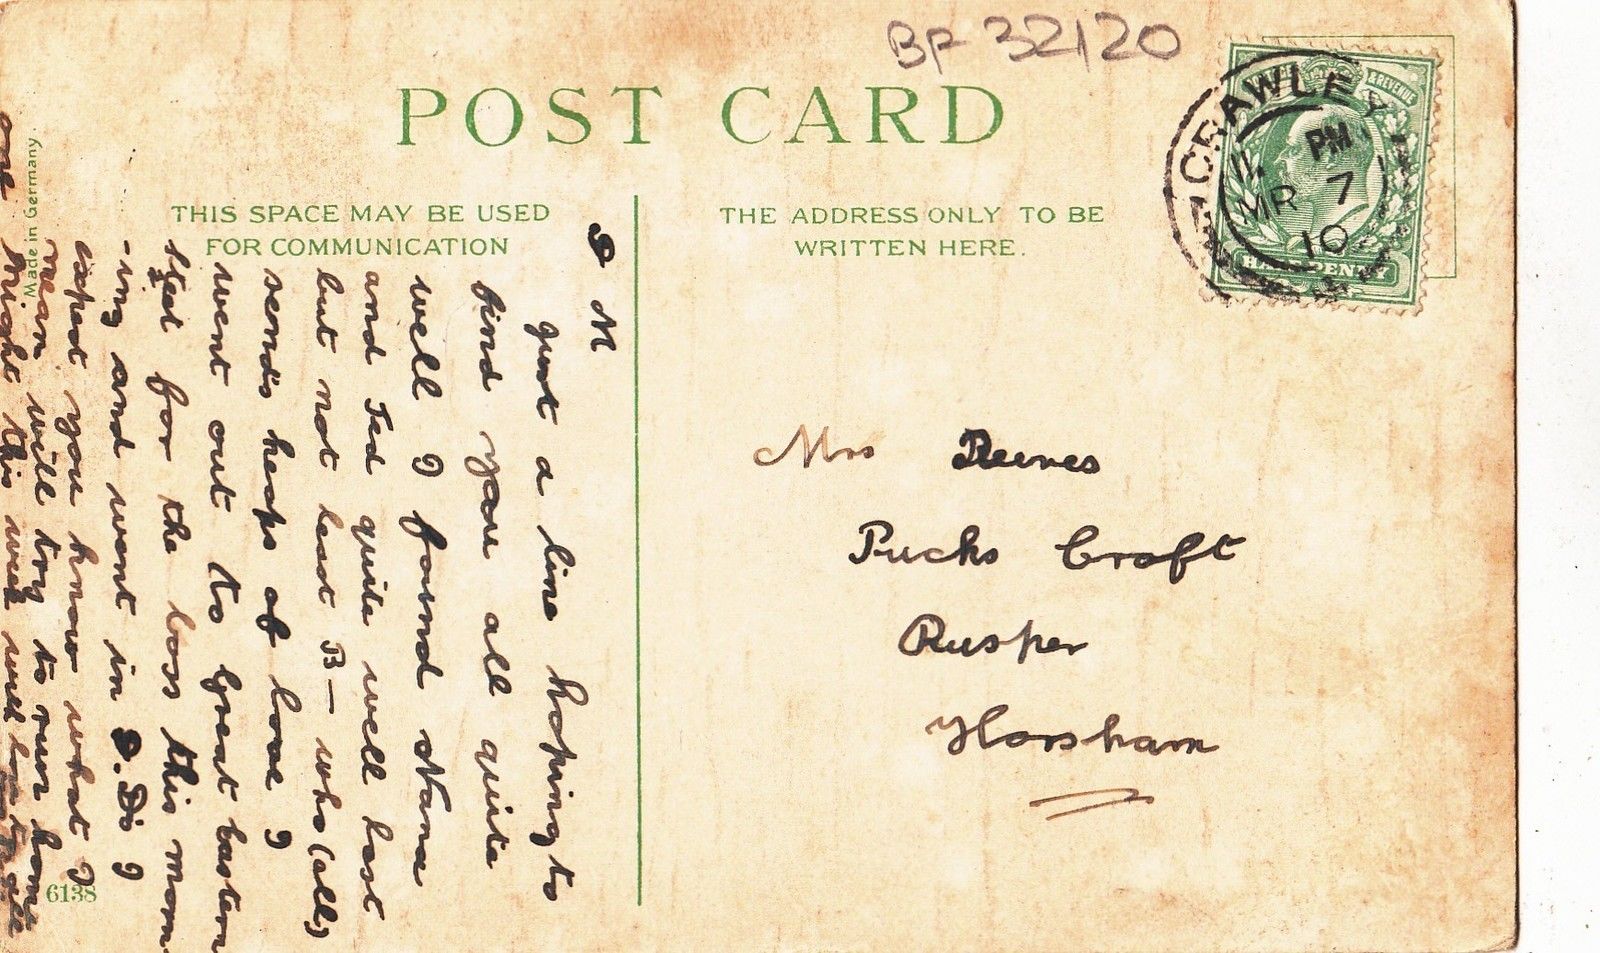 BF 32120
POST CARD
THIS SPACE MAY BE USED
FOR COMMUNICATION
THE ADDRESS ONLY TO BE
WRITTEN HERE.
CRAWLEY
11. PM
MR 7
10
& REVENUE
HALFPENNY
Made in Germany.
D M
Just a line hoping to
find you all quite
well I found Nana
and Ted quite well last
but not least B— who (all)
sends heaps of love I
went out to Great Eastern
Steet for the boss this morn
-ing and went in D. Dis I
expect you know what I
mean will try to run home
one night this week with
6138
Mrs Reeves
Pucks Croft
Rusper
Horsham